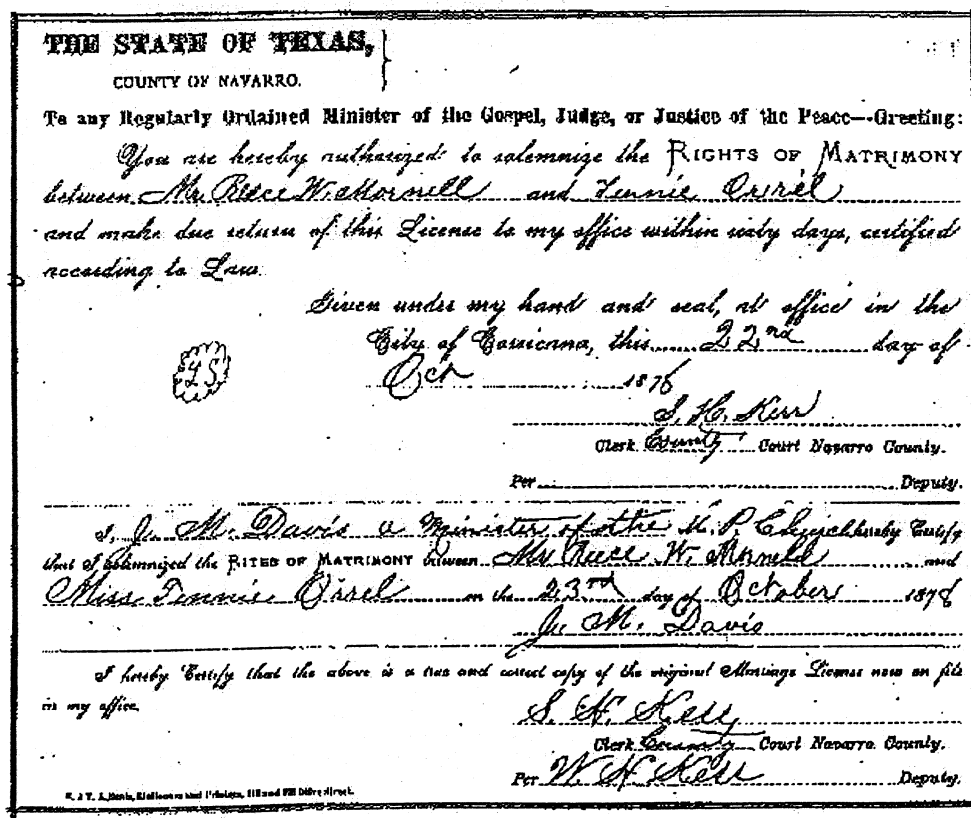 THE STATE OF TEXAS,
COUNTY OF NAVARRO.
To any Regularly Ordained Minister of the Gospel, Judge, or Justice of the Peace—Greeting:
You are hereby authorized to solemnize the RIGHTS OF MATRIMONY
between Mr. Reece W. Mornell and Tennie Orrel
and make due return of this License to my office within sixty days, certified
according to Law.
Given under my hand and seal, at office in the
City of Corsicana, this 22nd day of
LS
Oct 1876
S. H. Kerr
Clerk County Court Navarro County.
Per Deputy.
I, J. M. Davis a Minister of the M. P. Church hereby Certify
that I solemnized the RITES OF MATRIMONY between Mr Reece W. Mornell and
Miss Tennie Orrel on the 23rd day of October 1876
J. M. Davis
I hereby Certify that the above is a true and correct copy of the original Marriage License now on file
in my office.
S. H. Kerr
Clerk County Court Navarro County.
Per W. H. Kerr Deputy.